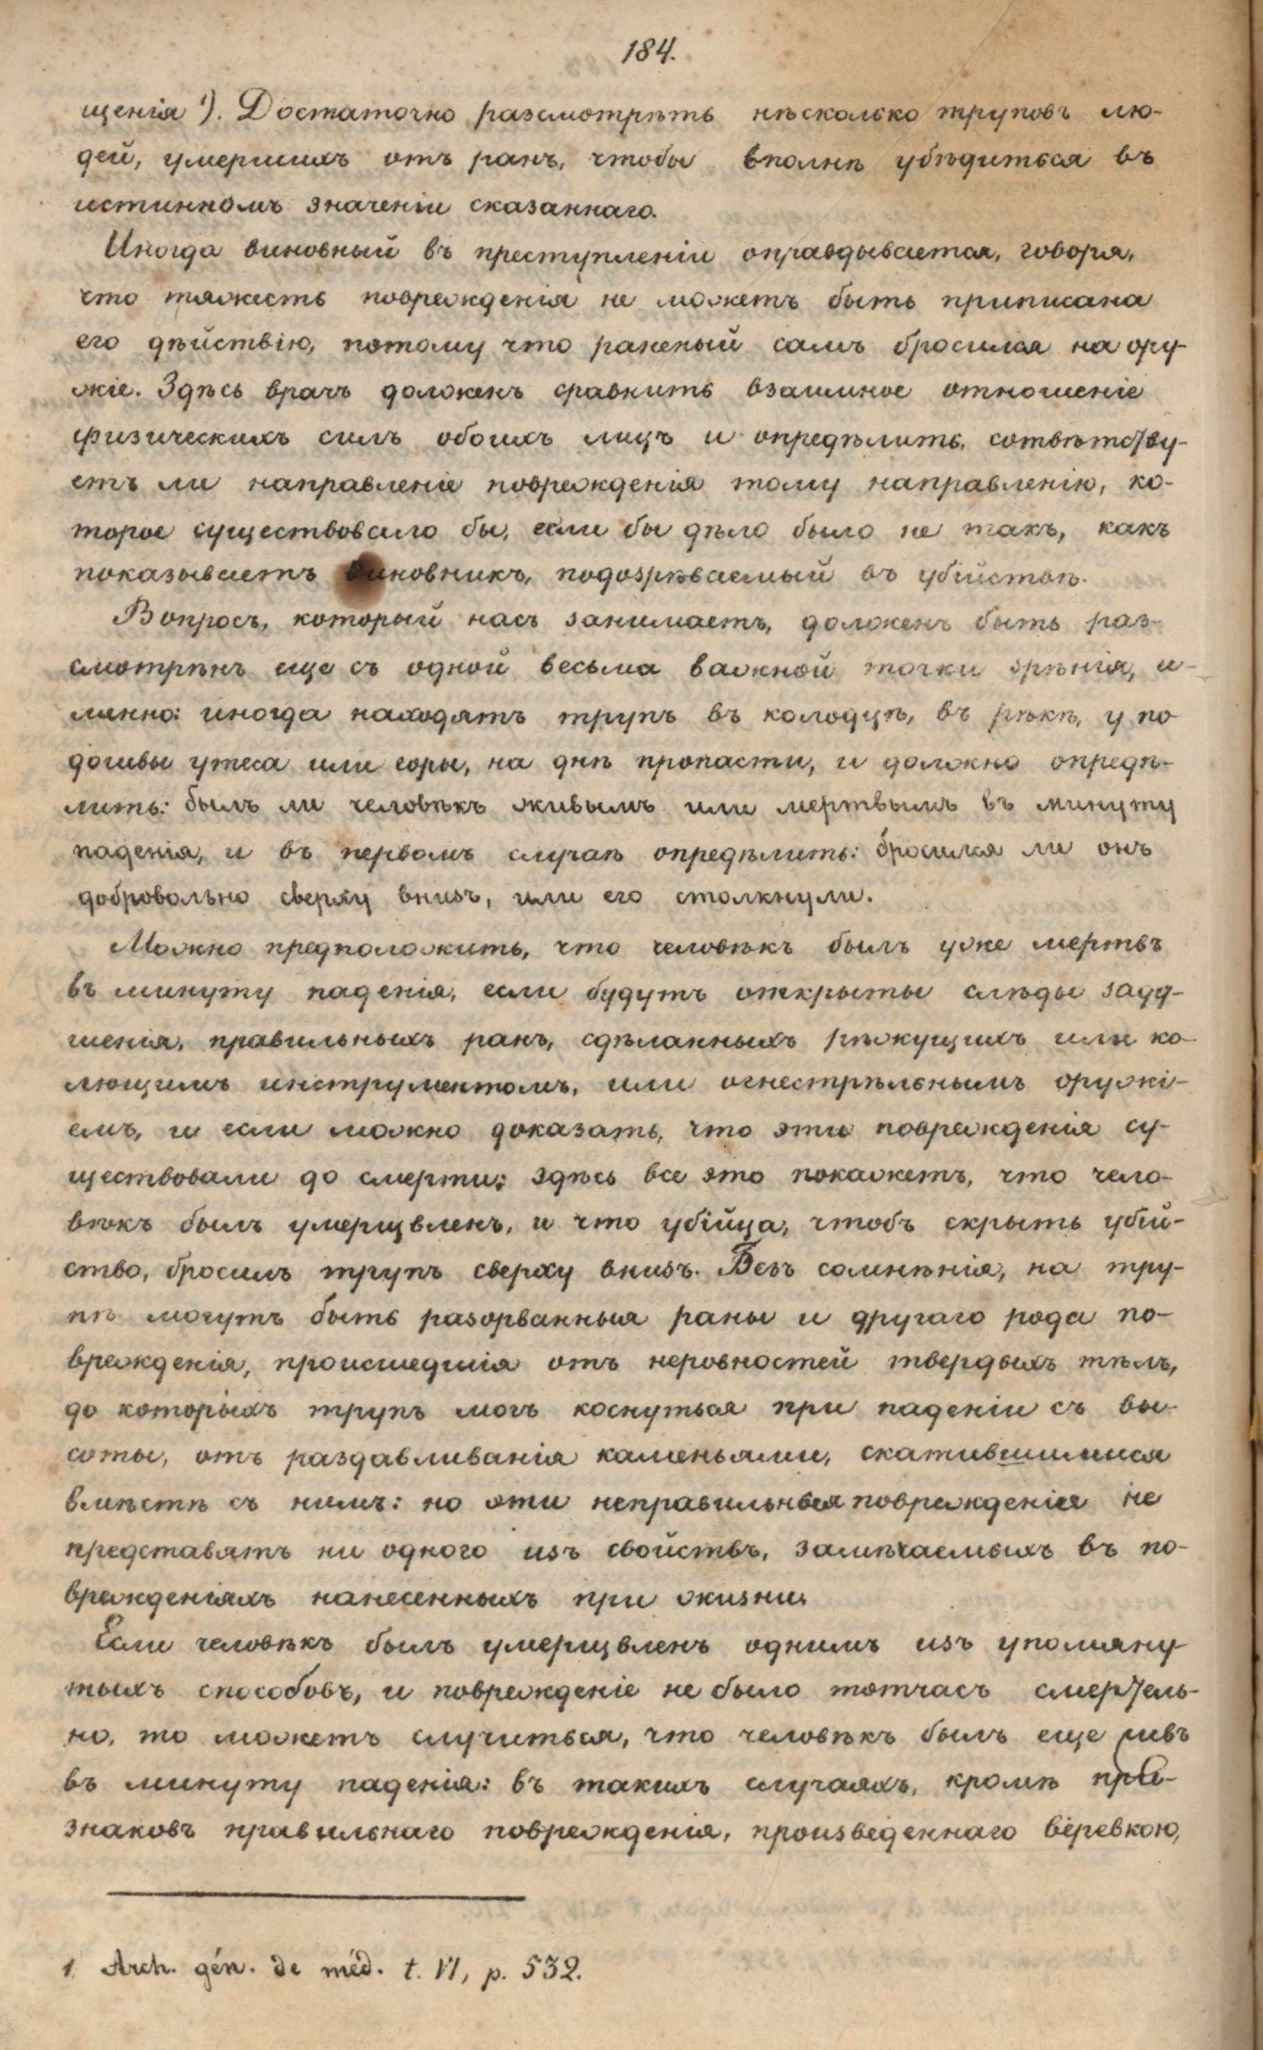 184.
щенія ¹). Достаточно разсмотрѣть нѣсколько труповъ лю-
дей, умершихъ отъ ранъ, чтобы вполнѣ убѣдиться въ
истинномъ значеніи сказаннаго.
Иногда виновный въ преступленіи оправдывается, говоря,
что тяжесть поврежденія не можетъ быть приписана
его дѣйствію, потому что раненый самъ бросился на ору-
жіе. Здѣсь врачъ долженъ сравнить взаимное отношеніе
физическихъ силъ обоихъ лицъ и опредѣлить, сотвѣтству-
етъ ли направленіе поврежденія тому направленію, ко-
торое существовало бы, если бы дѣло было не такъ, какъ
показываетъ виновникъ, подозрѣваемый въ убійствѣ.
Вопросъ, который насъ занимаетъ, долженъ быть раз-
смотрѣнъ еще съ одной весьма важной точки зрѣнія, и-
менно: иногда находятъ трупъ въ колодцѣ, въ рѣкѣ, у по
дошвы утеса или горы, на днѣ пропасти, и должно опредѣ-
лить: былъ ли человѣкъ живымъ или мертвымъ въ минуту
паденія, и въ первомъ случаѣ опредѣлить: бросился ли онъ
добровольно сверху внизъ, или его столкнули.
Можно предположить, что человѣкъ былъ уже мертвъ
въ минуту паденія, если будутъ открыты слѣды заду-
шенія, правильныхъ ранъ, сдѣланныхъ рѣжущихъ или ко-
лющимъ инструментомъ, или огнестрѣльнымъ оружі-
емъ, и если можно доказать, что эти поврежденія су-
ществовали до смерти; здѣсь все это покажетъ, что чело-
вѣкъ былъ умерщвленъ, и что убійца, чтобъ скрыть убій-
ство, бросилъ трупъ сверху внизъ. Безъ сомнѣнія, на тру-
пѣ могутъ быть разорванныя раны и другаго рода по-
врежденія, происшедшія отъ неровностей твердыхъ тѣлъ,
до которыхъ трупъ могъ коснуться при паденіи съ вы-
соты, отъ раздавливанія каменьями, скатившимися
вмѣстѣ съ нимъ: но эти неправильныя поврежденія не
представятъ ни одного изъ свойствъ, замѣчаемыхъ въ по-
врежденіяхъ нанесенныхъ при жизни.
Если человѣкъ былъ умерщвленъ однимъ изъ упомяну
тыхъ способовъ, и поврежденіе не было тотчасъ смертель-
но, то можетъ случиться, что человѣкъ былъ еще живъ
въ минуту паденія: въ такихъ случаяхъ, кромѣ при-
знаковъ правильнаго поврежденія, произведеннаго веревкою,
1 Arch. gén. de méd. t. VI, p. 532.